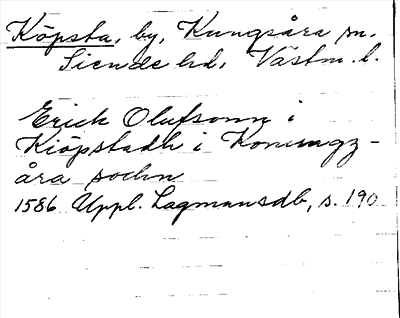 Köpsta, by, Kungsåra sn.
Siende hd, Västm. l.
Erich Olufsonn i
Kiöpstadh i Konungz-
åra sochn
1586 Uppl. Lagmansdb, s. 190